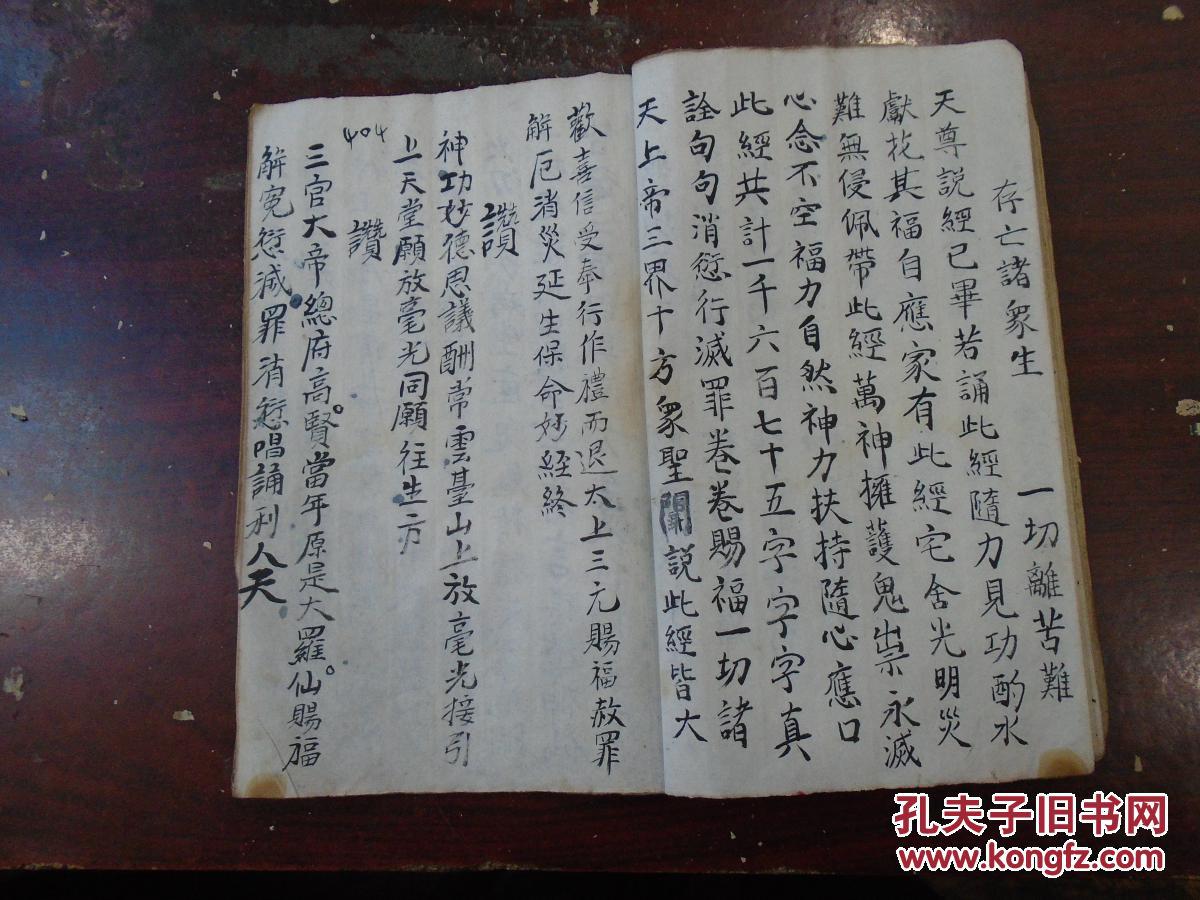 存亡諸衆生 一切離苦難
天尊説經已畢若誦此經隨力見功酌水
獻花其福自應家有此經宅舍光明災
難無侵佩帶此經萬神擁護鬼祟永滅
心念不空福力自然神力扶持隨心應口
此經共計一千六百七十五字字字真
詮句句消愆行行滅罪卷卷賜福一切諸
天上帝三界十方衆聖聞説此經皆大
歡喜信受奉行作禮而退太上三元賜福赦罪
解厄消災延生保命妙經終
讚
神功妙德恩議酬常雲臺山上放毫光接引
上天堂願放毫光同願往生方
404
讚
三官大帝總府高賢。當年原是大羅仙。賜福
解冤愆滅罪消愆唱誦利人天
孔夫子旧书网
www.kongfz.com